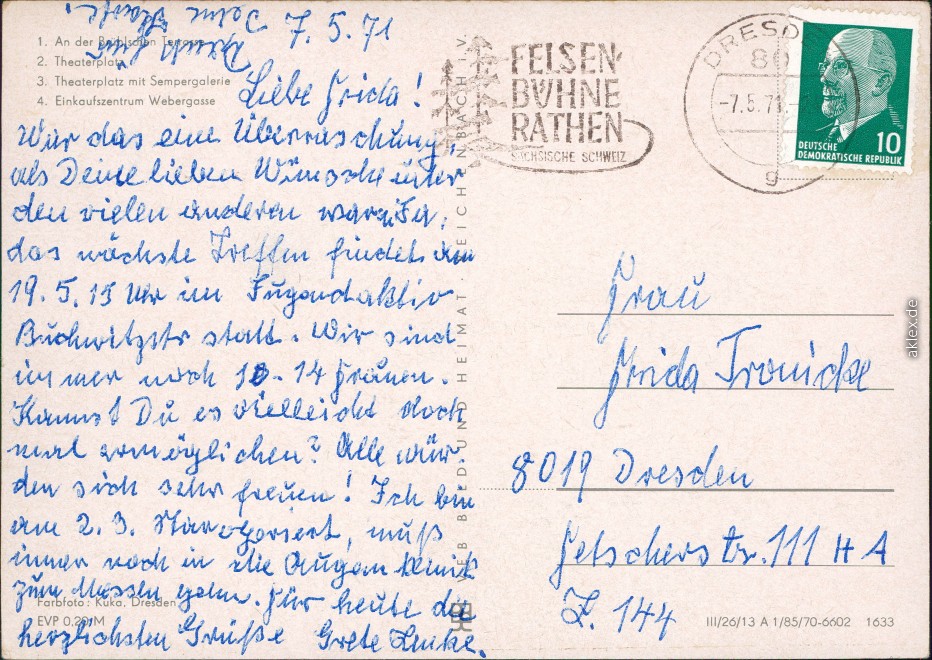 7. 5. 71
1. An der Brühlschen Terrasse
2. Theaterplatz
3. Theaterplatz mit Sempergalerie
4. Einkaufszentrum Webergasse
Liebe Frida!
War das eine Überraschung,
als Deine lieben Wünsche unter
den vielen anderen war.
das nächste Treffen findet am
19. 5. 15 Uhr im Jugendaktiv
Buchwitzstr statt. Wir sind
immer noch 10-14 Frauen.
Kannst Du es vielleicht doch
mal ermöglichen? Alle wür-
den sich sehr freuen! Ich bin
am 2. 3. operiert, muß
immer noch in die Augen
zum Messen gehn. Für heute die
herzlichsten Grüße Grete
Farbfoto: Kuka, Dresden
EVP 0.20 M
VEB BILD UND HEIMAT · REICHENBACH I. V.
FELSEN-
BÜHNE
RATHEN
SÄCHSISCHE SCHWEIZ
DRESDEN
80
-7.5.71
g
10
DEUTSCHE
DEMOKRATISCHE REPUBLIK
Frau
Frida Tronicke
8019 Dresden
Fetscherstr. 111 H A
Z. 144
III/26/13 A 1/85/70-6602 1633
aklex.de